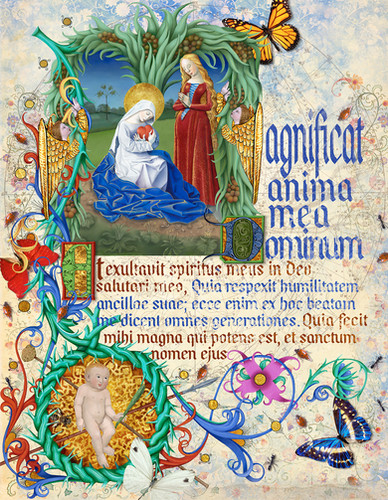 Magnificat
anima
mea
Dominum
Et exultavit spiritus meus in Deo
salutari meo, Quia respexit humilitatem
ancillae suae; ecce enim ex hoc beatam
me dicent omnes generationes. Quia fecit
mihi magna qui potens est, et sanctum
nomen ejus